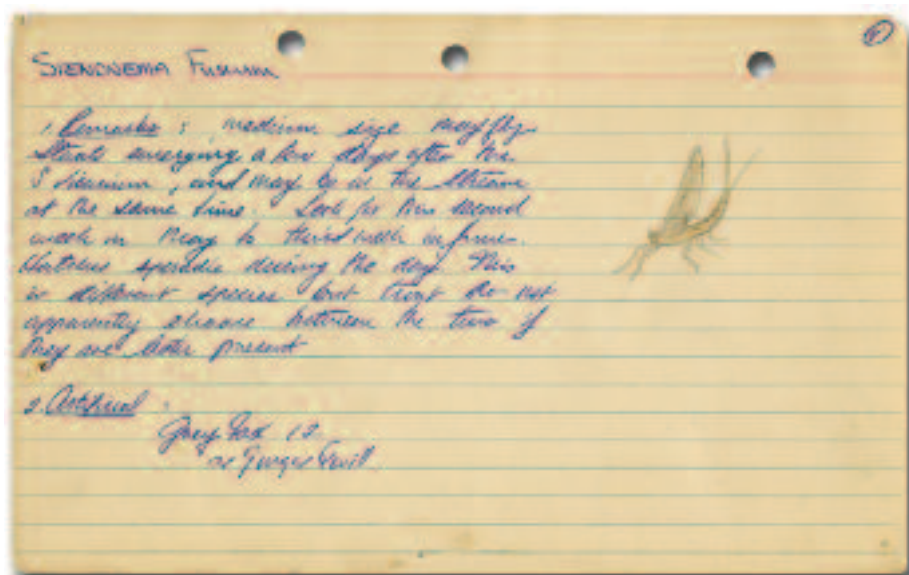 STENONEMA FUSCUM
1. Remarks: medium size mayfly
Starts emerging a few days after the
S vicarium, and may be in the stream
at the same time. Look for this second
week in May to third week in June.
Hatches sporadic during the day. This
is different species but trout do not
apparently choose between the two if
they are both present
2. Artificial.
Grey Fox 12
or Ginger Quill